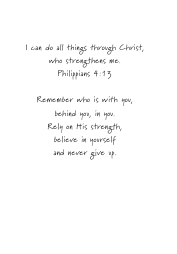 I can do all things through Christ,
who strengthens me.
Philippians 4:13
Remember who is with you,
behind you, in you.
Rely on His strength,
believe in yourself
and never give up.